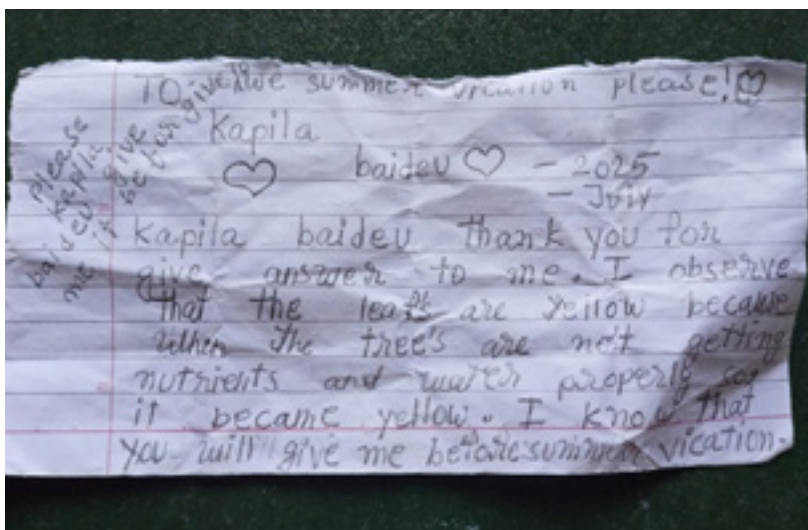 TO give me summer vication please!
Kapila
baideu - 2025
- July
please
kapila
baideu give
me it before give
Kapila baideu thank you for
give answer to me. I observe
that the leafs are yellow because
when the tree's are not getting
nutrients and water properly so
it became yellow. I know that
you will give me before summer vication.